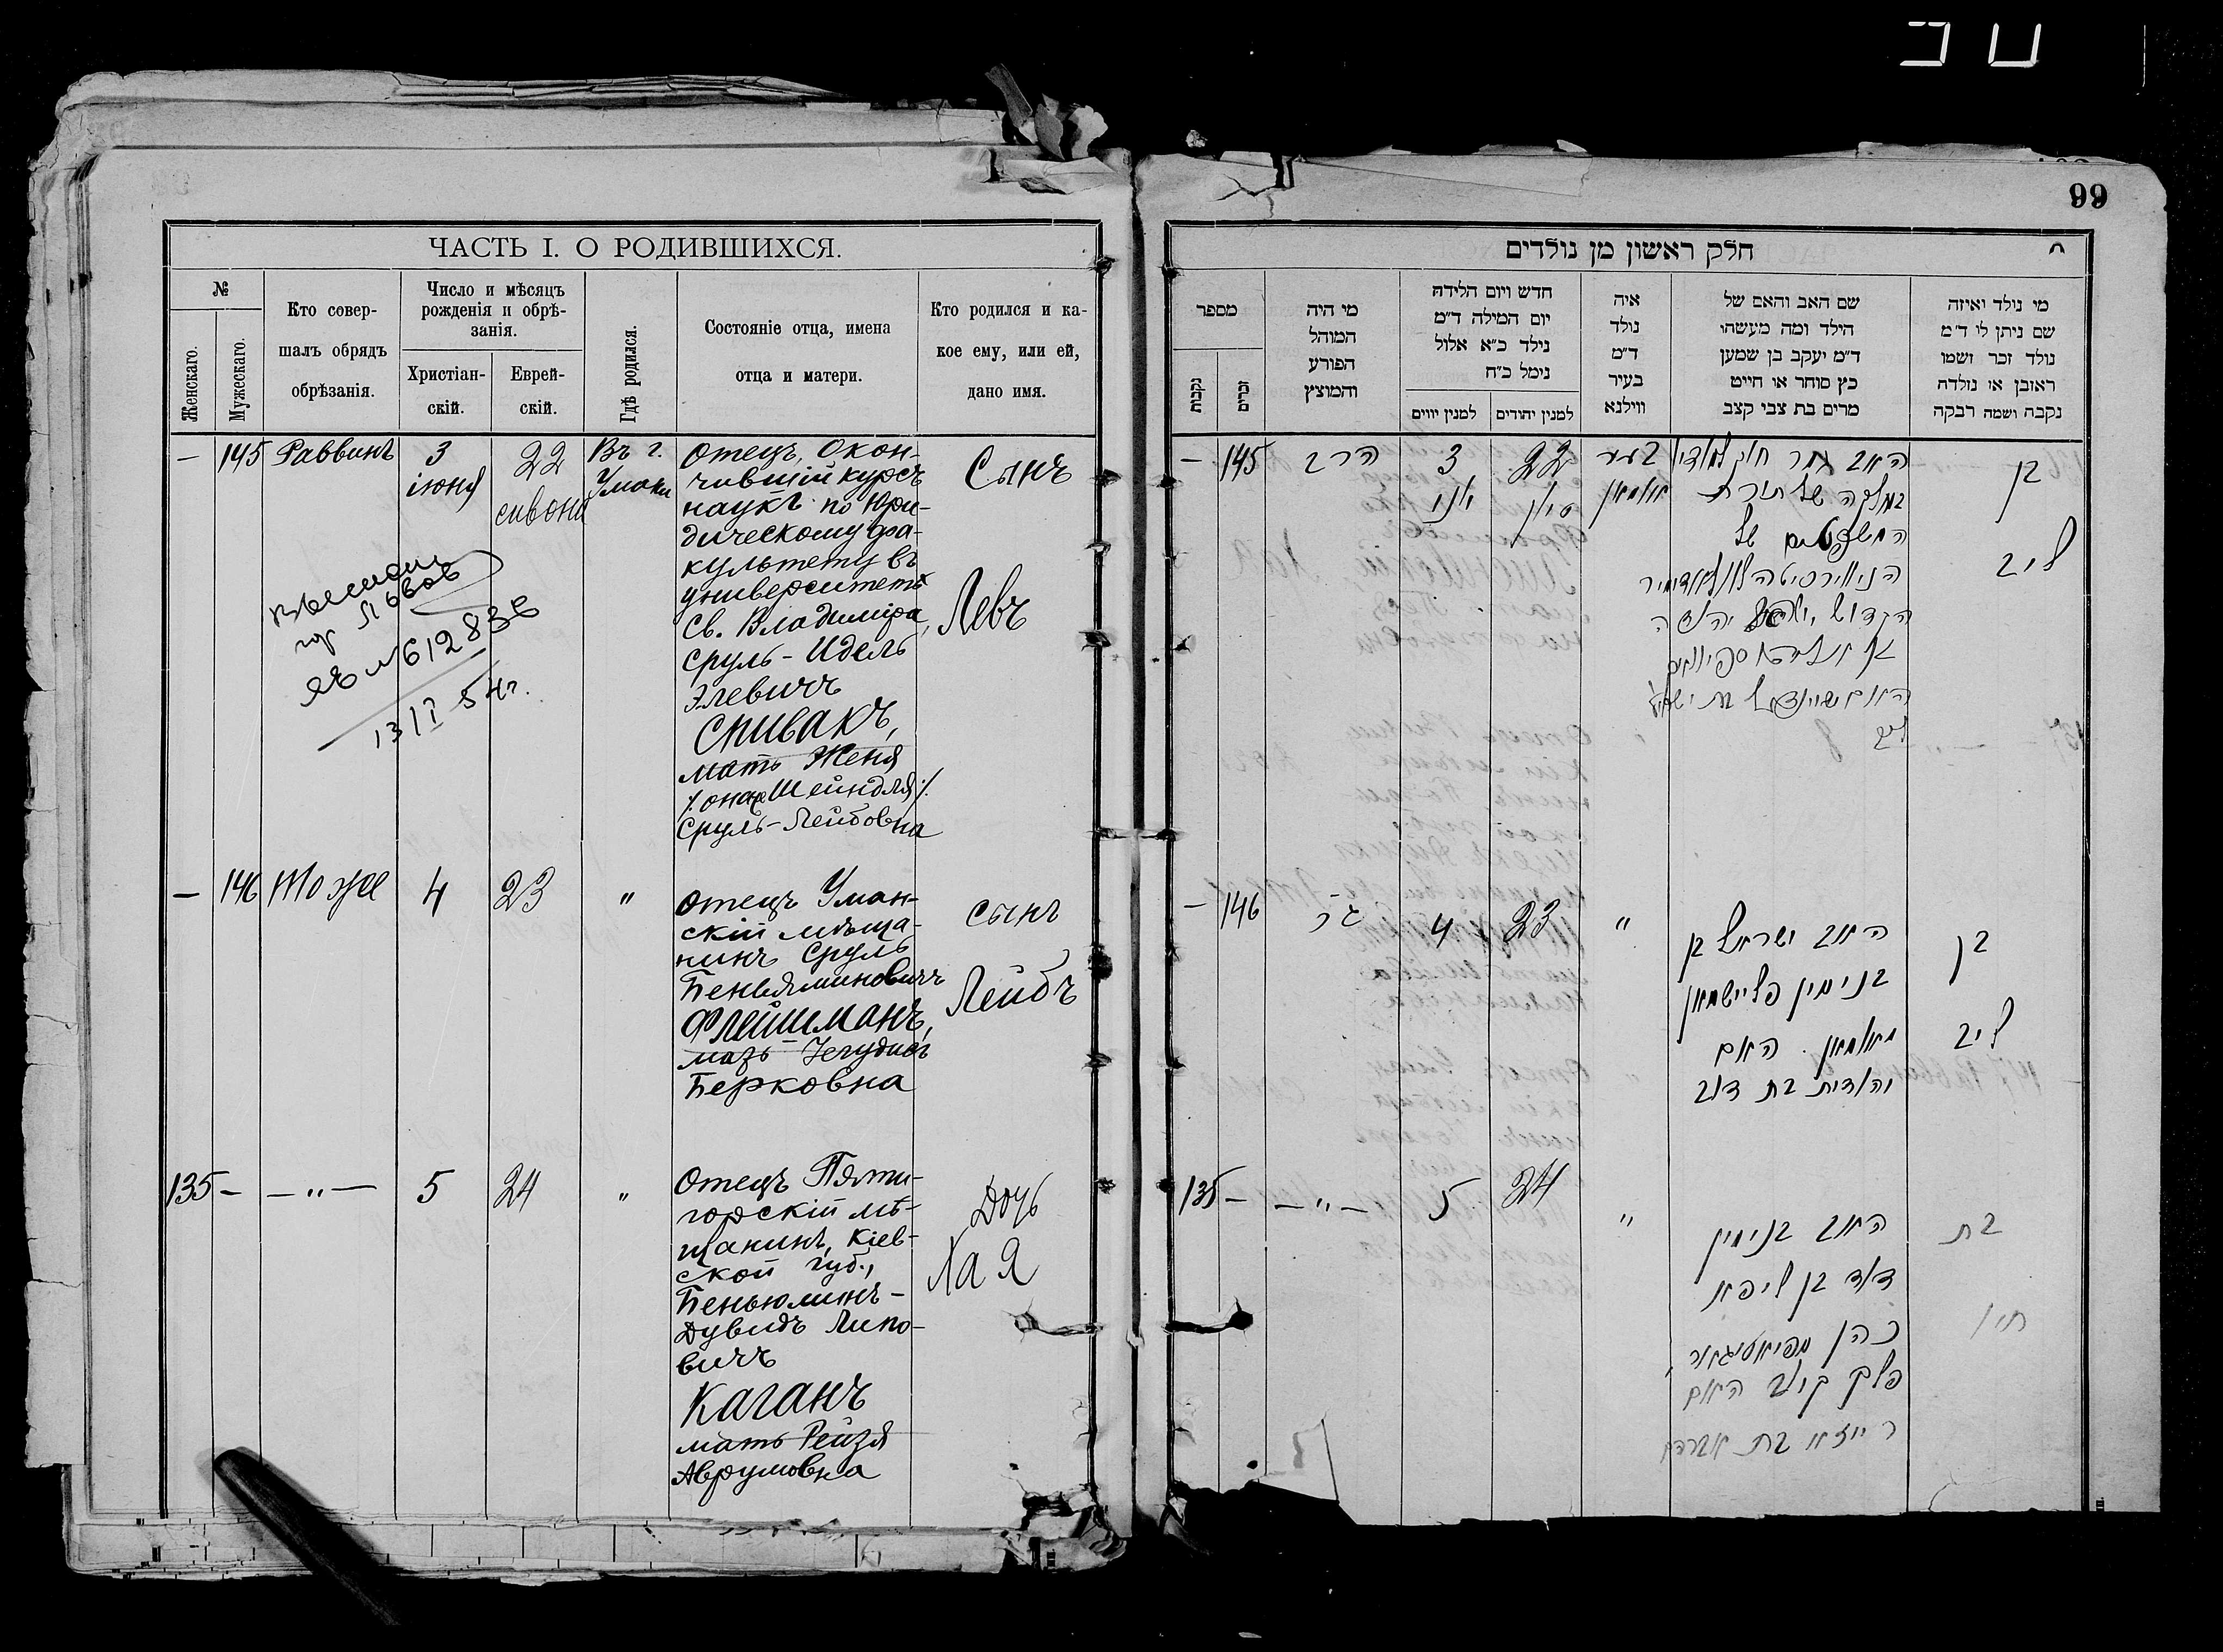 99
ЧАСТЬ I. О РОДИВШИХСЯ.
№
Женскаго.
Мужескаго.
Кто совер-
шалъ обрядъ
обрѣзанія.
Число и мѣсяцъ
рожденія и обрѣ-
занія.
Христіан-
скій.
Еврей-
скій.
Гдѣ родился.
Состояніе отца, имена
отца и матери.
Кто родился и ка-
кое ему, или ей,
дано имя.
— 145 Раввинъ 3
іюня
22
сивона
Въ г.
Умани
Отецъ, Окон-
чившій курсъ
наукъ по Юри-
дическому фа-
культету въ
университетѣ
Св. Владиміра,
Сруль-Идель
Элевичъ
СПИВАКЪ,
мать Женя
онаже Шейндля
Сруль-Лейбовна
Сынъ
Левъ
гор Львов
яъ № 612836
13/I 54 г.
— 146 Тоже 4 23 "
Отецъ Уман-
скій мѣща-
нинъ Сруль
Беньяминовичъ
ФЛЕЙШМАНЪ,
Берковна
сынъ
Лейбъ
135 — — " — 5 24 "
Отецъ Пяти-
горскій мѣ-
щанинъ, Кіев-
ской губ.,
Беньюминъ-
Дувидъ Липо-
вичъ
КАГАНЪ
мать Рейзя
Аврумовна
Дочь
Хая
חלק ראשון מן נולדים
מספר
נקבות
זכרים
מי היה
המוהל
הפורע
והמוצץ
חדש ויום הלידה
יום המילה ד״מ
נילד כ״א אלול
נימל כ״ח
למנין יווים
למנין יהודים
איה
נולד
ד״מ
בעיר
ווילנא
שם האב והאם של
הילד ומה מעשהו
ד״מ יעקב בן שמען
כץ סוחר או חייט
מרים בת צבי קצב
מי נולד ואיזה
שם ניתן לו ד״מ
נולד זכר ושמו
ראובן או נולדה
נקבה ושמה רבקה
— 145 הרב 3
יוני
22
סיון
בעיר
אומאן
האב גמר חוק למודיו
במחלקה של תורת
המשפטים של
הקדוש
בן
ליב
— 146 4 23 "
האב ישראל בן
בנימין פליישמאן
מאומאן האם
יהודית בת דוב
בן
ליב
135 — — " — 5 24 "
האב בנימין
דוד בן ליפא
כהן מפיאטיגאר
פלך קיוב האם
רייזא בת אברהם
בת
חיו